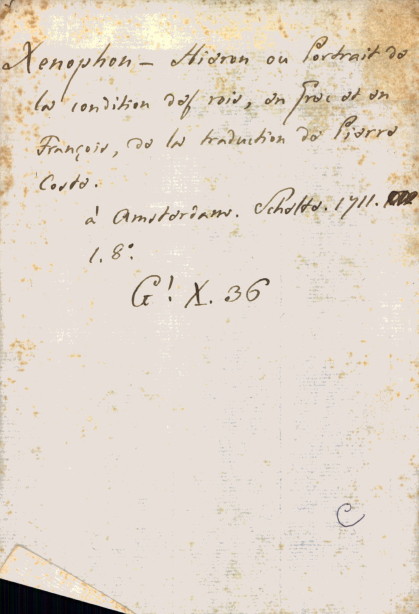 Xenophon — Hieron ou Portrait de
la condition des rois, en Grec et en
François, de la traduction de Pierre
Coste.
à Amsterdam. Schelte. 1711.
1. 8°.
G! X. 36
C